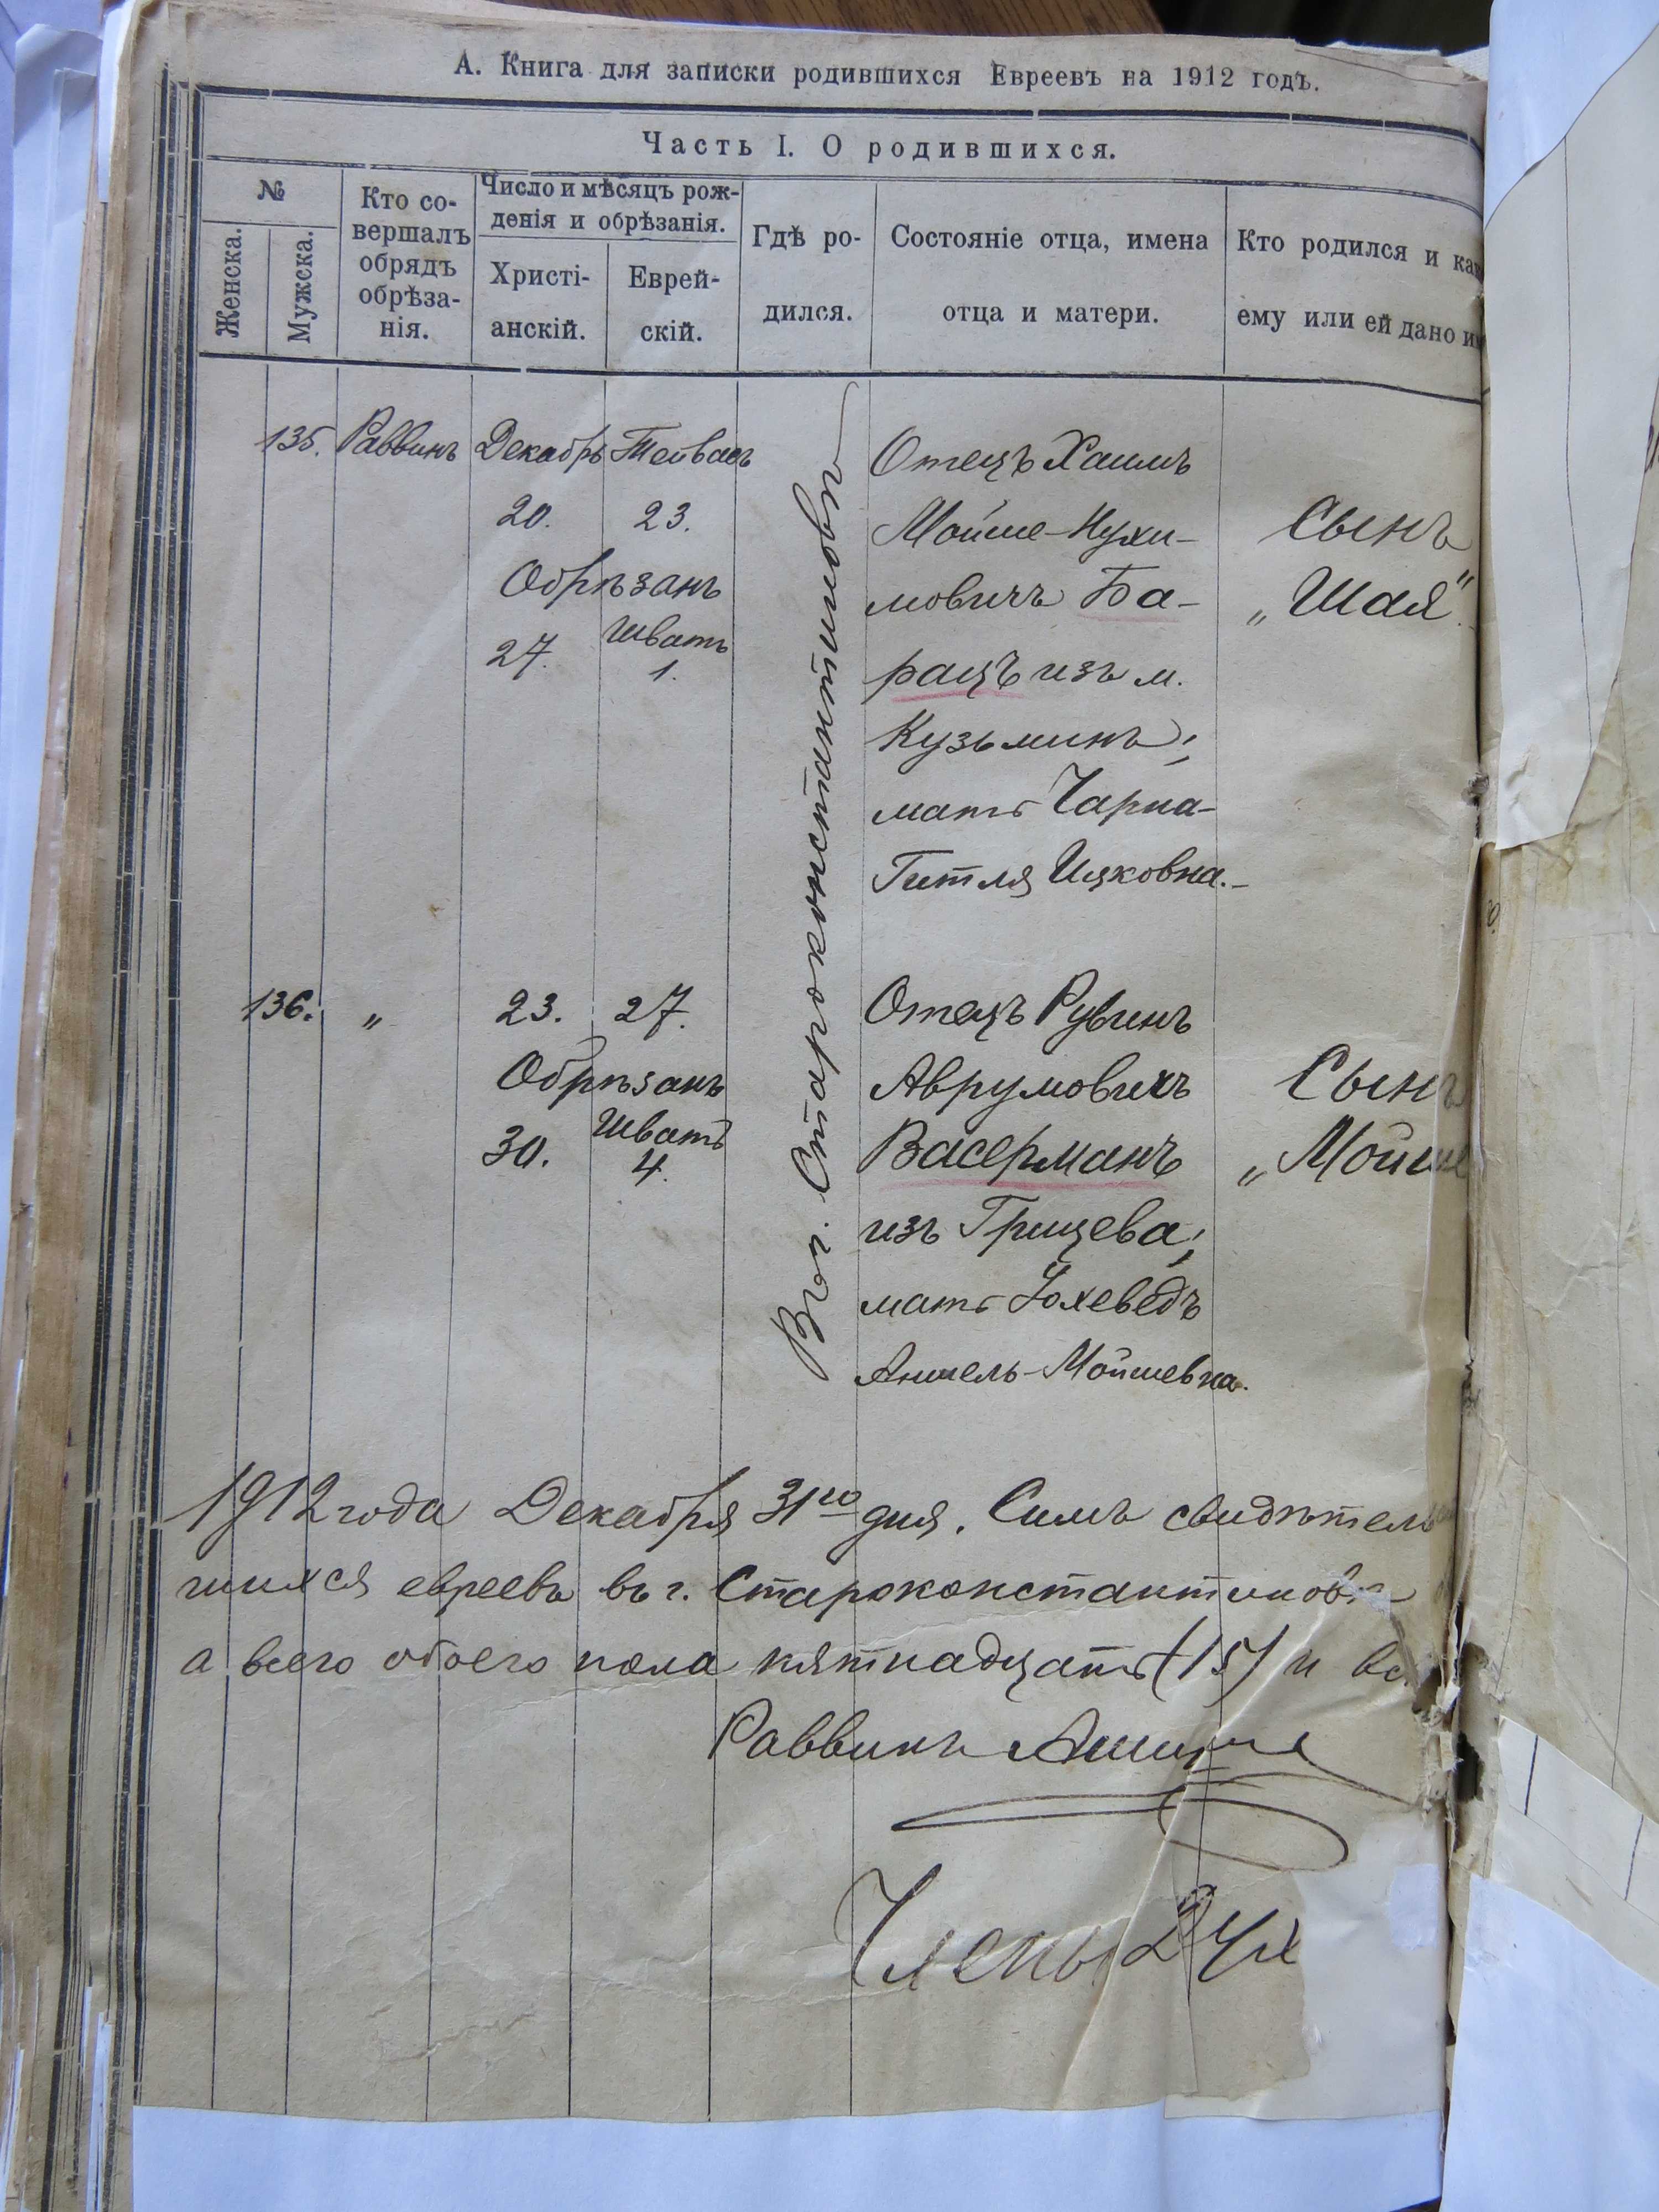 А. Книга для записки родившихся Евреевъ на 1912 годъ.
Часть I. О родившихся.
№
Женска.
Мужска.
Кто со-
вершалъ
обрядъ
обрѣза-
нія.
Число и мѣсяцъ рож-
денія и обрѣзанія.
Христі-
анскій.
Еврей-
скій.
Гдѣ ро-
дился.
Состояніе отца, имена
отца и матери.
Кто родился и как
ему или ей дано им
135. Раввинъ Декабрь Тейвасъ
20. 23.
Обрѣзанъ
27. Шватъ
1.
Въ г. Староконстантиновѣ
Отецъ Хаимъ
Мойше-Нухи-
мовичъ Ба-
рацъ изъ м.
Кузьминъ;
мать Чарна-
Гитля Ицковна.-
Сынъ
„Шая".
136. „ 23. 27.
Обрѣзанъ
30. Шватъ
4.
Отецъ Рувинъ
Аврумовичъ
Васерманъ
изъ Грицева;
мать Іохеведъ
Аншель-Мойшевна.
Сынъ
„Мойше
1912 года Декабря 31го дня. Симъ свидѣтель
шихся евреевъ въ г. Староконстантиновѣ
а всего обоего пола пятнадцать (15) и
Раввинъ
Члены Дух